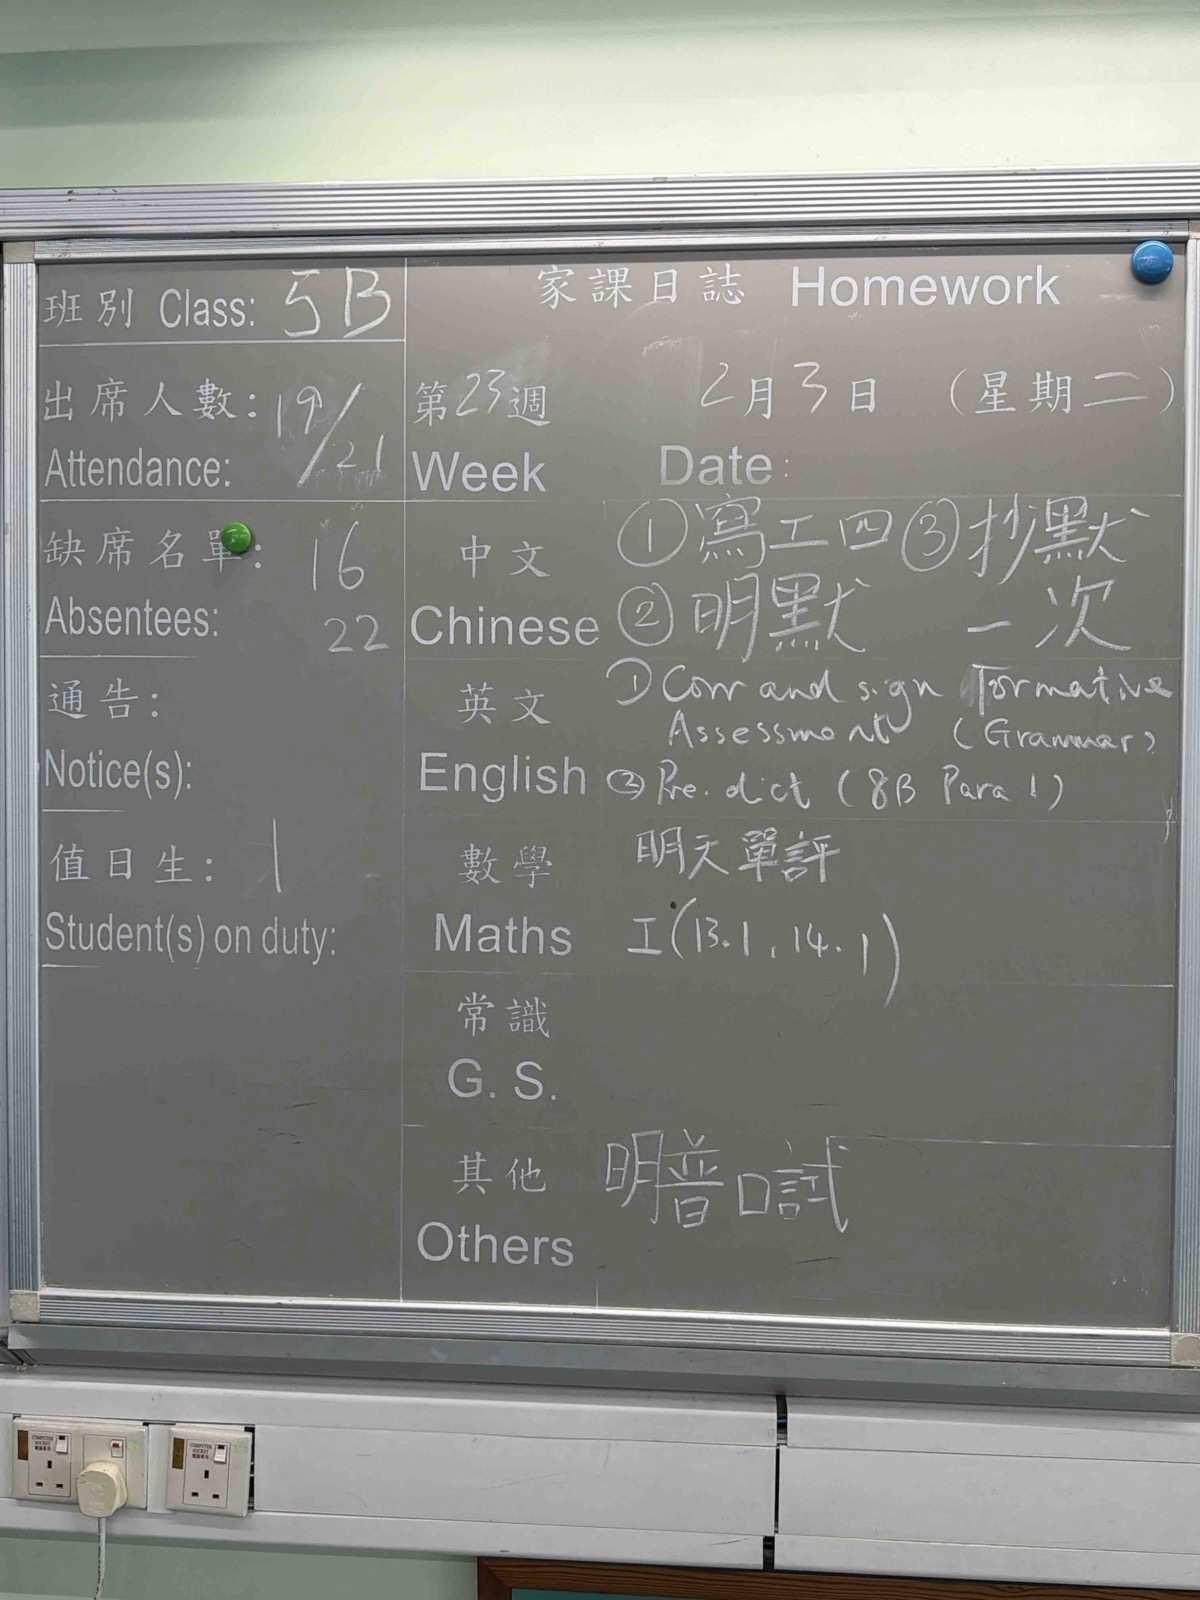 班別 Class: 5B
出席人數: 19/21
Attendance:
缺席名單: 16
Absentees: 22
通告:
Notice(s):
值日生: 1
Student(s) on duty:
家課日誌 Homework
第23週 2月3日 (星期二)
Week Date:
中文 ①寫工四 ③抄默
Chinese ②明默 一次
英文 ① Corr and sign Formative
Assessment (Grammar)
English ② Pre. dict (8B Para 1)
數學 明天單評
Maths 工(13.1, 14.1)
常識
G. S.
其他 明普口試
Others
COMPUTER SOCKET
電腦專用
COMPUTER SOCKET
電腦專用